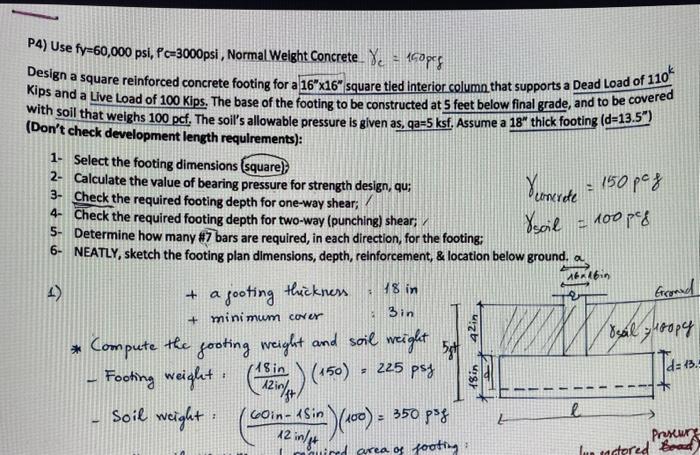 P4) Use fy=60,000 psi, f'c=3000psi , Normal Weight Concrete γc = 150pcf
Design a square reinforced concrete footing for a 16"x16" square tied interior column that supports a Dead Load of 110k
Kips and a Live Load of 100 Kips. The base of the footing to be constructed at 5 feet below final grade, and to be covered
with soil that weighs 100 pcf. The soil's allowable pressure is given as, qa=5 ksf. Assume a 18" thick footing (d=13.5")
(Don't check development length requirements):
1- Select the footing dimensions (square);
2- Calculate the value of bearing pressure for strength design, qu;
3- Check the required footing depth for one-way shear;
4- Check the required footing depth for two-way (punching) shear;
5- Determine how many #7 bars are required, in each direction, for the footing;
6- NEATLY, sketch the footing plan dimensions, depth, reinforcement, & location below ground.
γconcrete = 150 pcf
γsoil = 100 pcf
a
16x16in
Ground
1)
+ a footing thickness : 18 in
+ minimum cover : 3in
* Compute the footing weight and soil weight
- Footing weight : (18in / 12in/ft) (150) = 225 psf
- Soil weight : (60in-18in / 12in/ft) (100) = 350 psf
required area of footing :
5ft
42in
18in
d
γsoil = 100pcf
d=13.5
l
Pressure
load)